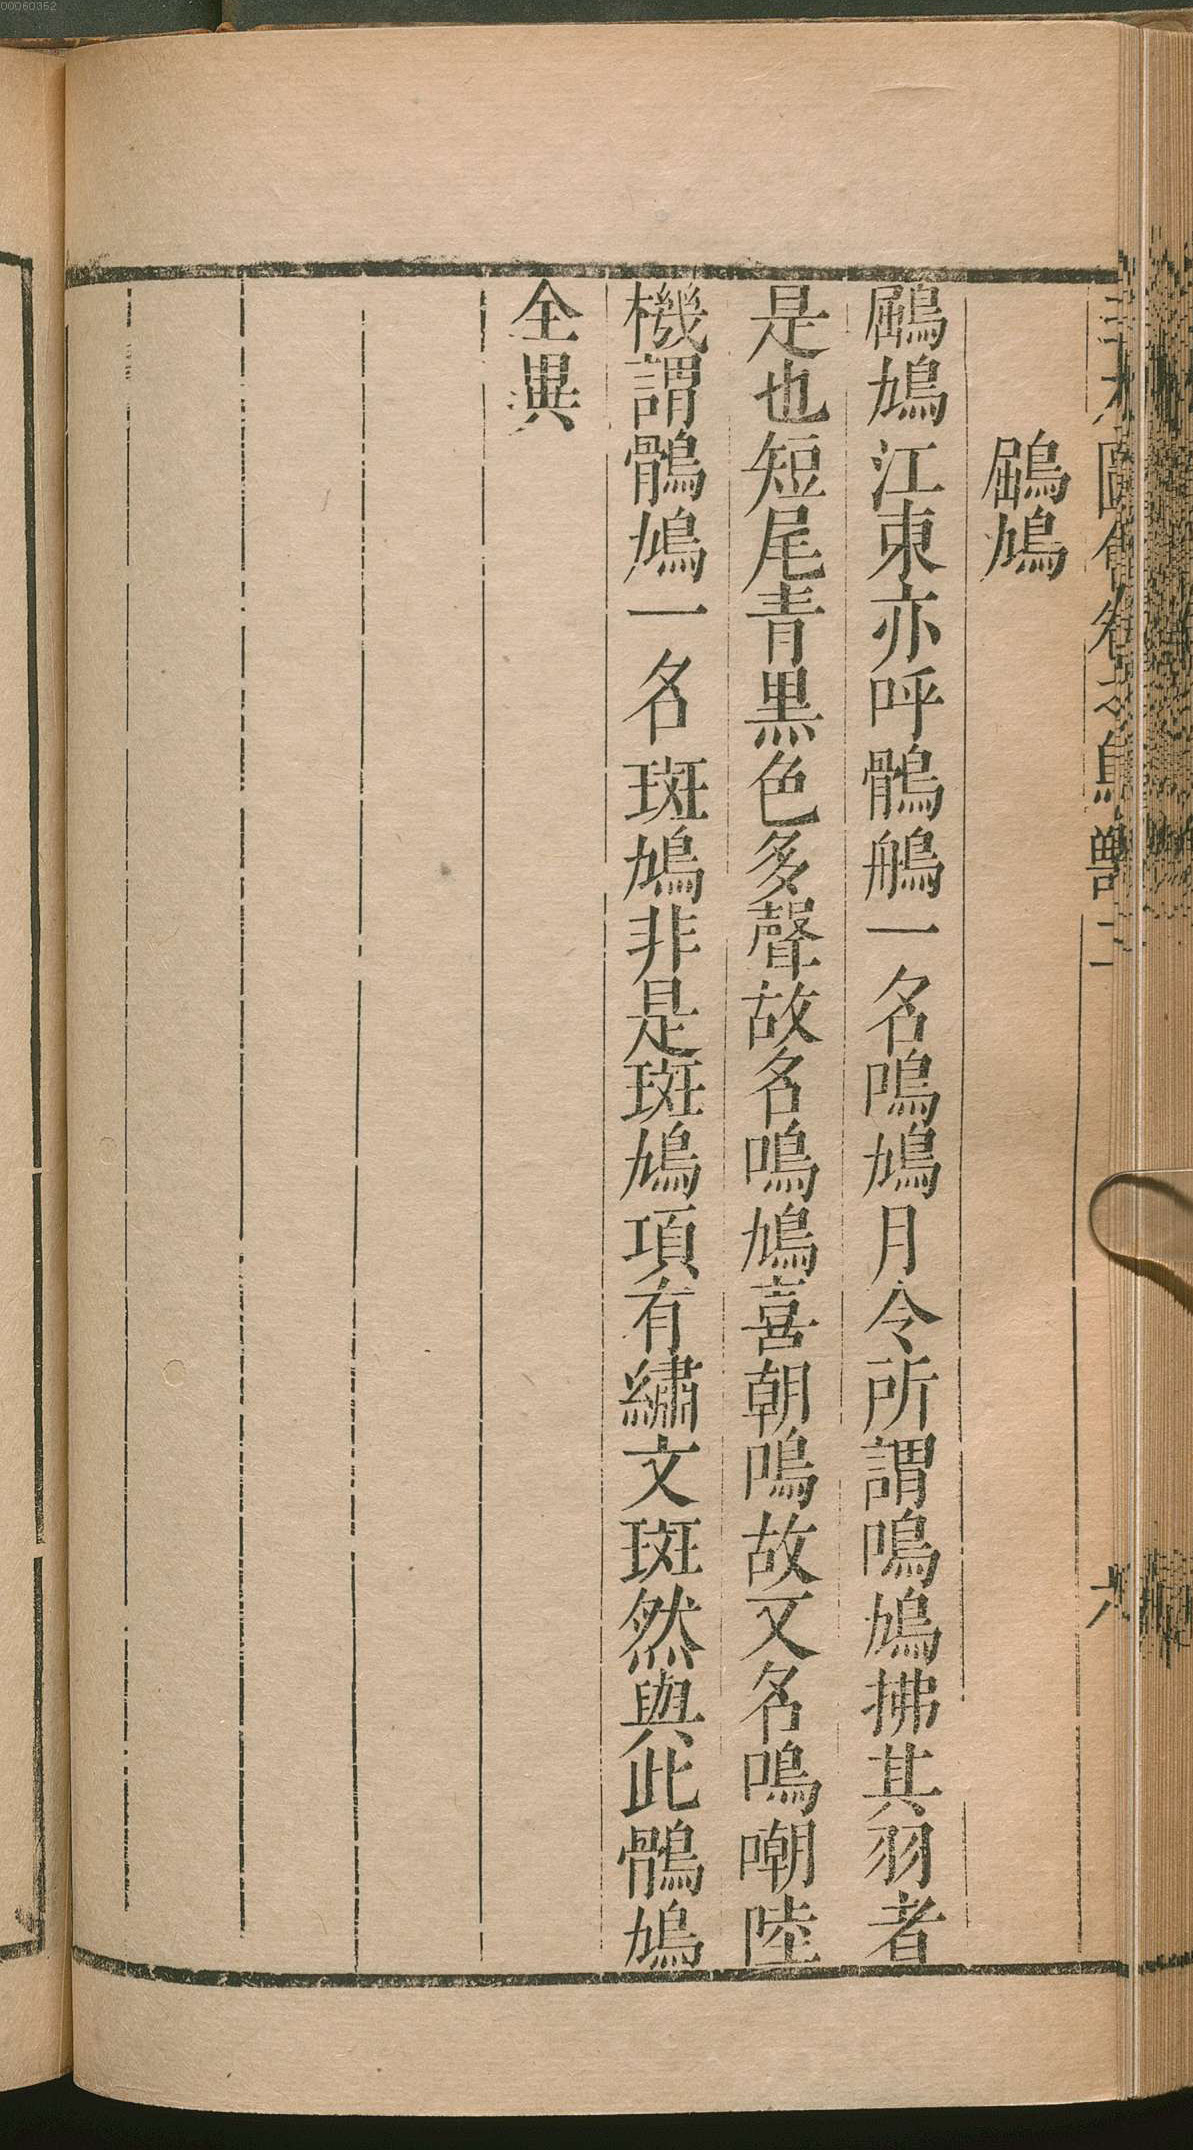 00060352
三才圖會卷之鳥獸二
六
鶌鳩
鶌鳩江東亦呼鶻鵃一名鳴鳩月令所謂鳴鳩拂其羽者
是也短尾青黑色多聲故名鳴鳩喜朝鳴故又名鳴嘲陸
機謂鶻鳩一名斑鳩非是斑鳩項有繡文斑然與此鶻鳩
全異